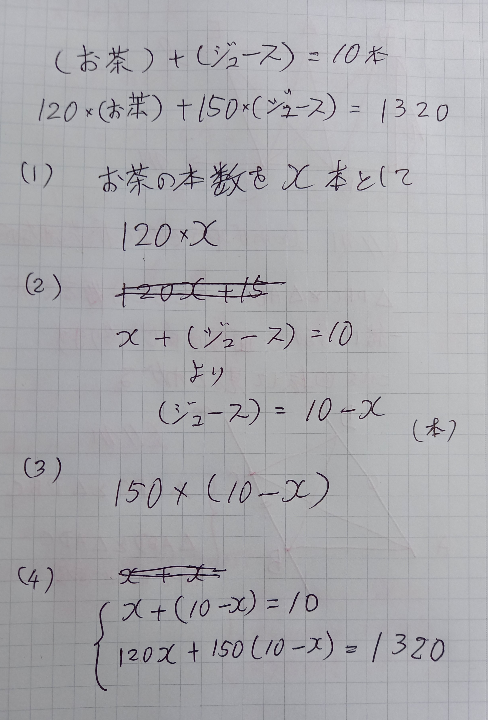 (お茶)+(ジュース)=10本
120×(お茶)+150×(ジュース)=1320
(1) お茶の本数を x 本として
120×x
(2) 120x+15
x+(ジュース)=10
より
(ジュース)=10-x (本)
(3) 150×(10-x)
(4) x+x
x+(10-x)=10
120x+150(10-x)=1320